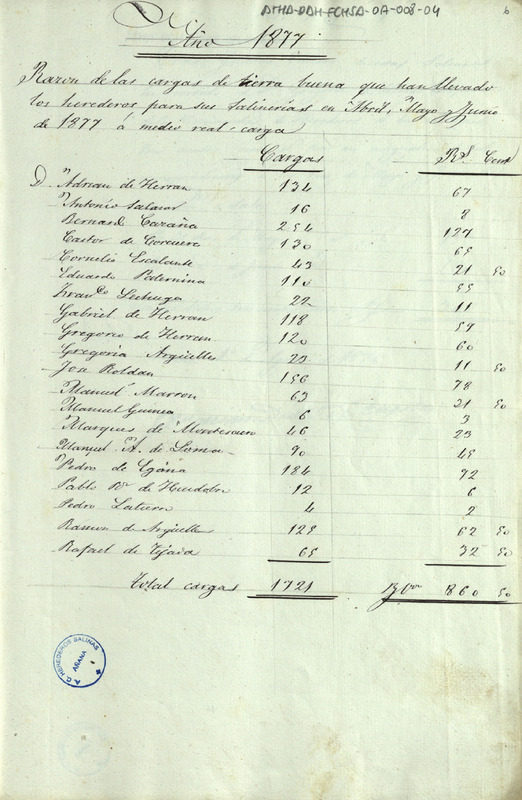 ATHA-DAH-FCHSA-OA-008-04
6
Año 1877
Razon de las cargas de tierra buena que han llevado
los herederos para sus salinerías en Abril, Mayo y Junio
de 1877 á medio real carga
Cargas Rs. Cent
D. Adrian de Herran 134 67
Antonio Salazar 16 8
Bernardo 254 127
Castor de Corcuera 130 65
Cornelio Escalante 43 21 50
Eduardo Peternina 110 55
Franco. Lechuga 22 11
Gabriel de Herran 118 59
Gregorio de Herran 120 60
Gregoria Argüelles 23 11 50
Jose Roldan 156 78
Manuel Marron 63 31 50
Manuel Guinea 6 3
Marques de Montesoro 46 23
Manuel A. de Loma 90 45
Pedro de Egaña 184 92
Pablo de 12 6
Pedro Latierro 4 2
Ramon de Argüelles 125 62 50
Rafael de Tejada 65 32 50
Total cargas 1721 R. Von 860 50
A. C. HEREDEROS SALINAS
ARAÑA